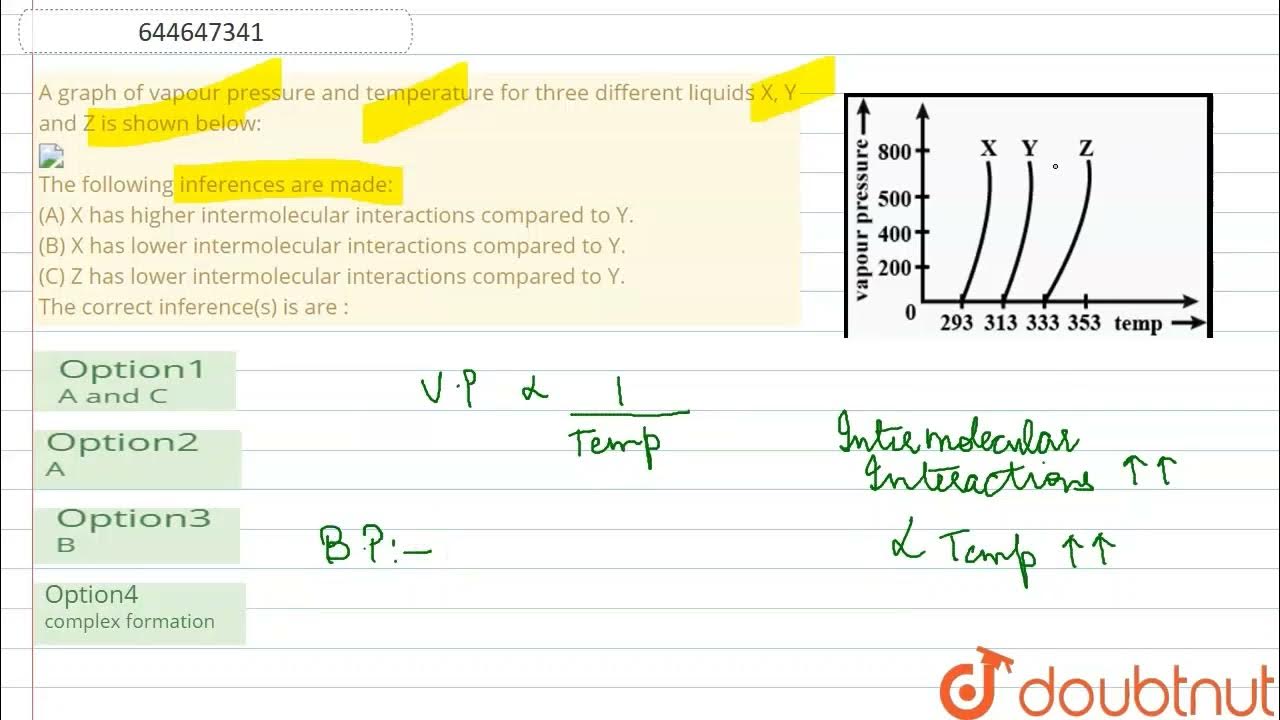 644647341
A graph of vapour pressure and temperature for three different liquids X, Y
and Z is shown below:
The following inferences are made:
(A) X has higher intermolecular interactions compared to Y.
(B) X has lower intermolecular interactions compared to Y.
(C) Z has lower intermolecular interactions compared to Y.
The correct inference(s) is are :
vapour pressure
800
500
400
200
0
X Y Z
293 313 333 353 temp
Option1
A and C
Option2
A
Option3
B
Option4
complex formation
V.P ∝ 1
Temp
Intermolecular
Interactions ↑↑
B.P:—
∝ Temp ↑↑
doubtnut